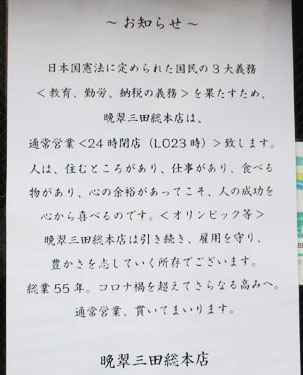 ～お知らせ～
日本国憲法に定められた国民の3大義務
<教育、勤労、納税の義務>を果たすため、
晩翠三田総本店は、
通常営業<24時閉店（LO23時）>致します。
人は、住むところがあり、仕事があり、食べる
物があり、心の余裕があってこそ、人の成功を
心から喜べるのです。<オリンピック等>
晩翠三田総本店は引き続き、雇用を守り、
豊かさを志していく所存でございます。
総業55年。コロナ禍を超えてさらなる高みへ。
通常営業、貫いてまいります。
晩翠三田総本店